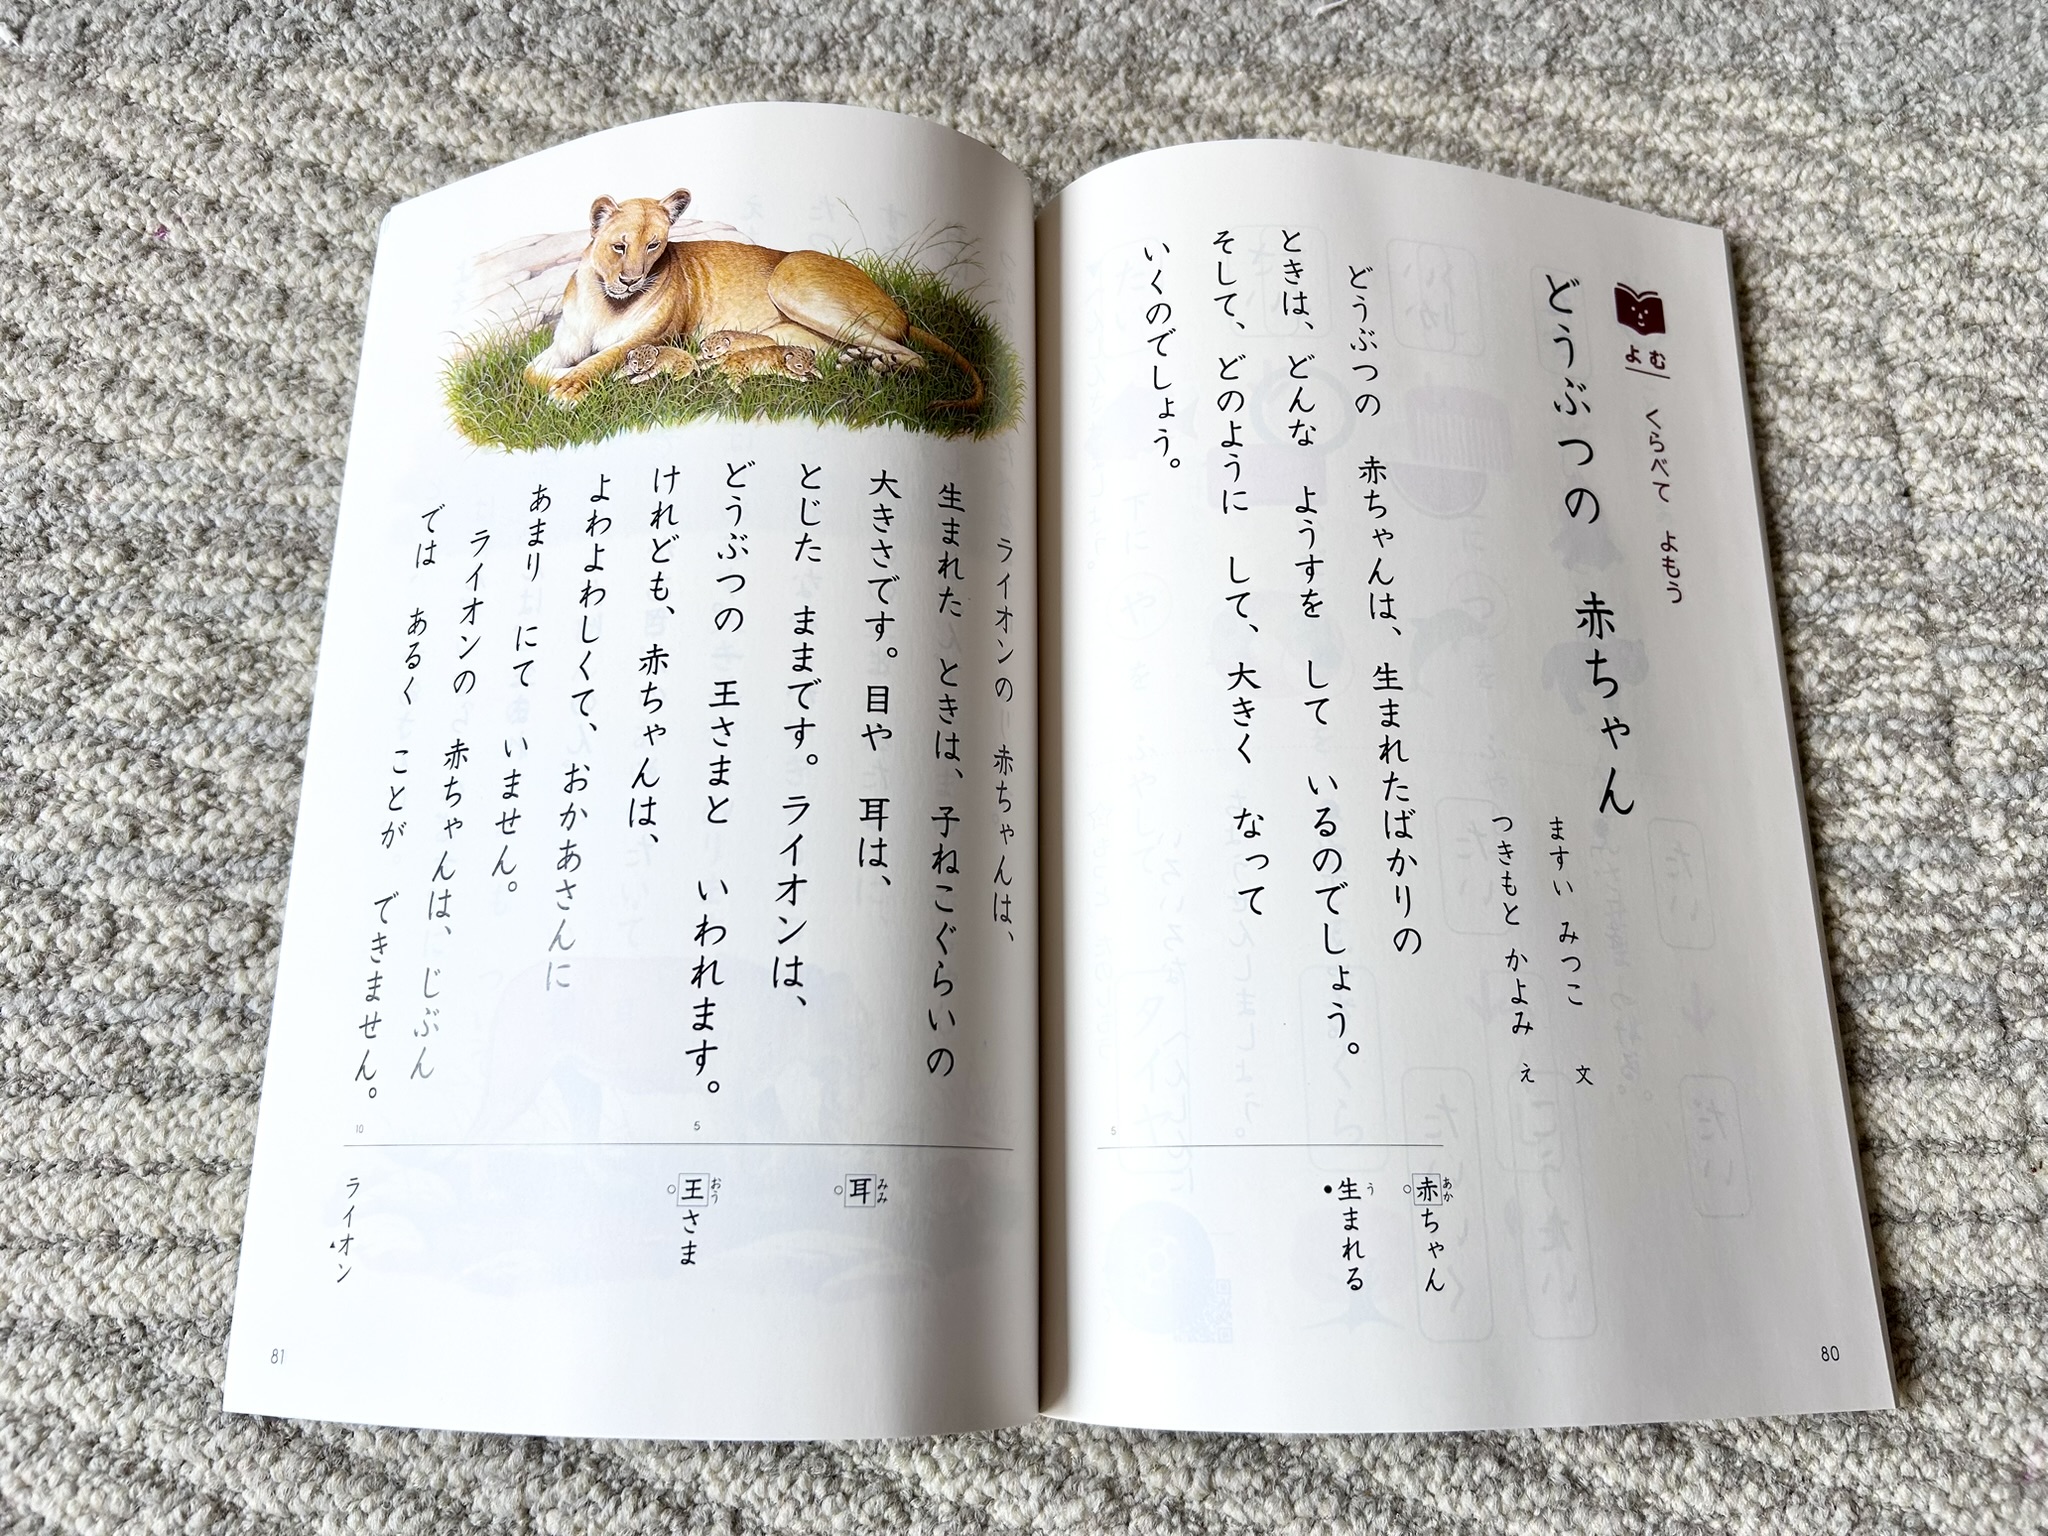 よむ
くらべて よもう
どうぶつの 赤ちゃん
ますい みつこ 文
つきもと かよみ え
どうぶつの 赤ちゃんは、生まれたばかりの
ときは、どんな ようすを して いるのでしょう。
そして、どのように して、大きく なって
いくのでしょう。
5
赤ちゃん
あか
生まれる
う
80
ライオンの 赤ちゃんは、
生まれた ときは、子ねこぐらいの
大きさです。目や 耳は、
とじた ままです。ライオンは、
どうぶつの 王さまと いわれます。
けれども、赤ちゃんは、
よわよわしくて、おかあさんに
あまり にて いません。
ライオンの 赤ちゃんは、じぶん
では あるく ことが できません。
5
10
耳
みみ
王さま
おう
ライオン
81